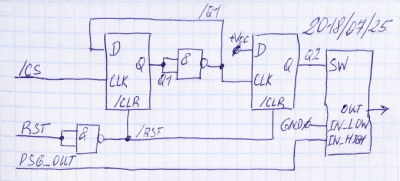 /Q1
2018/07/25
+Vcc
D
Q
&
D
Q
Q2
SW
/CS
CLK
Q1
CLK
/CLR
/CLR
OUT
RST
&
/RST
GND
IN_LOW
PSG_OUT
IN_HIGH